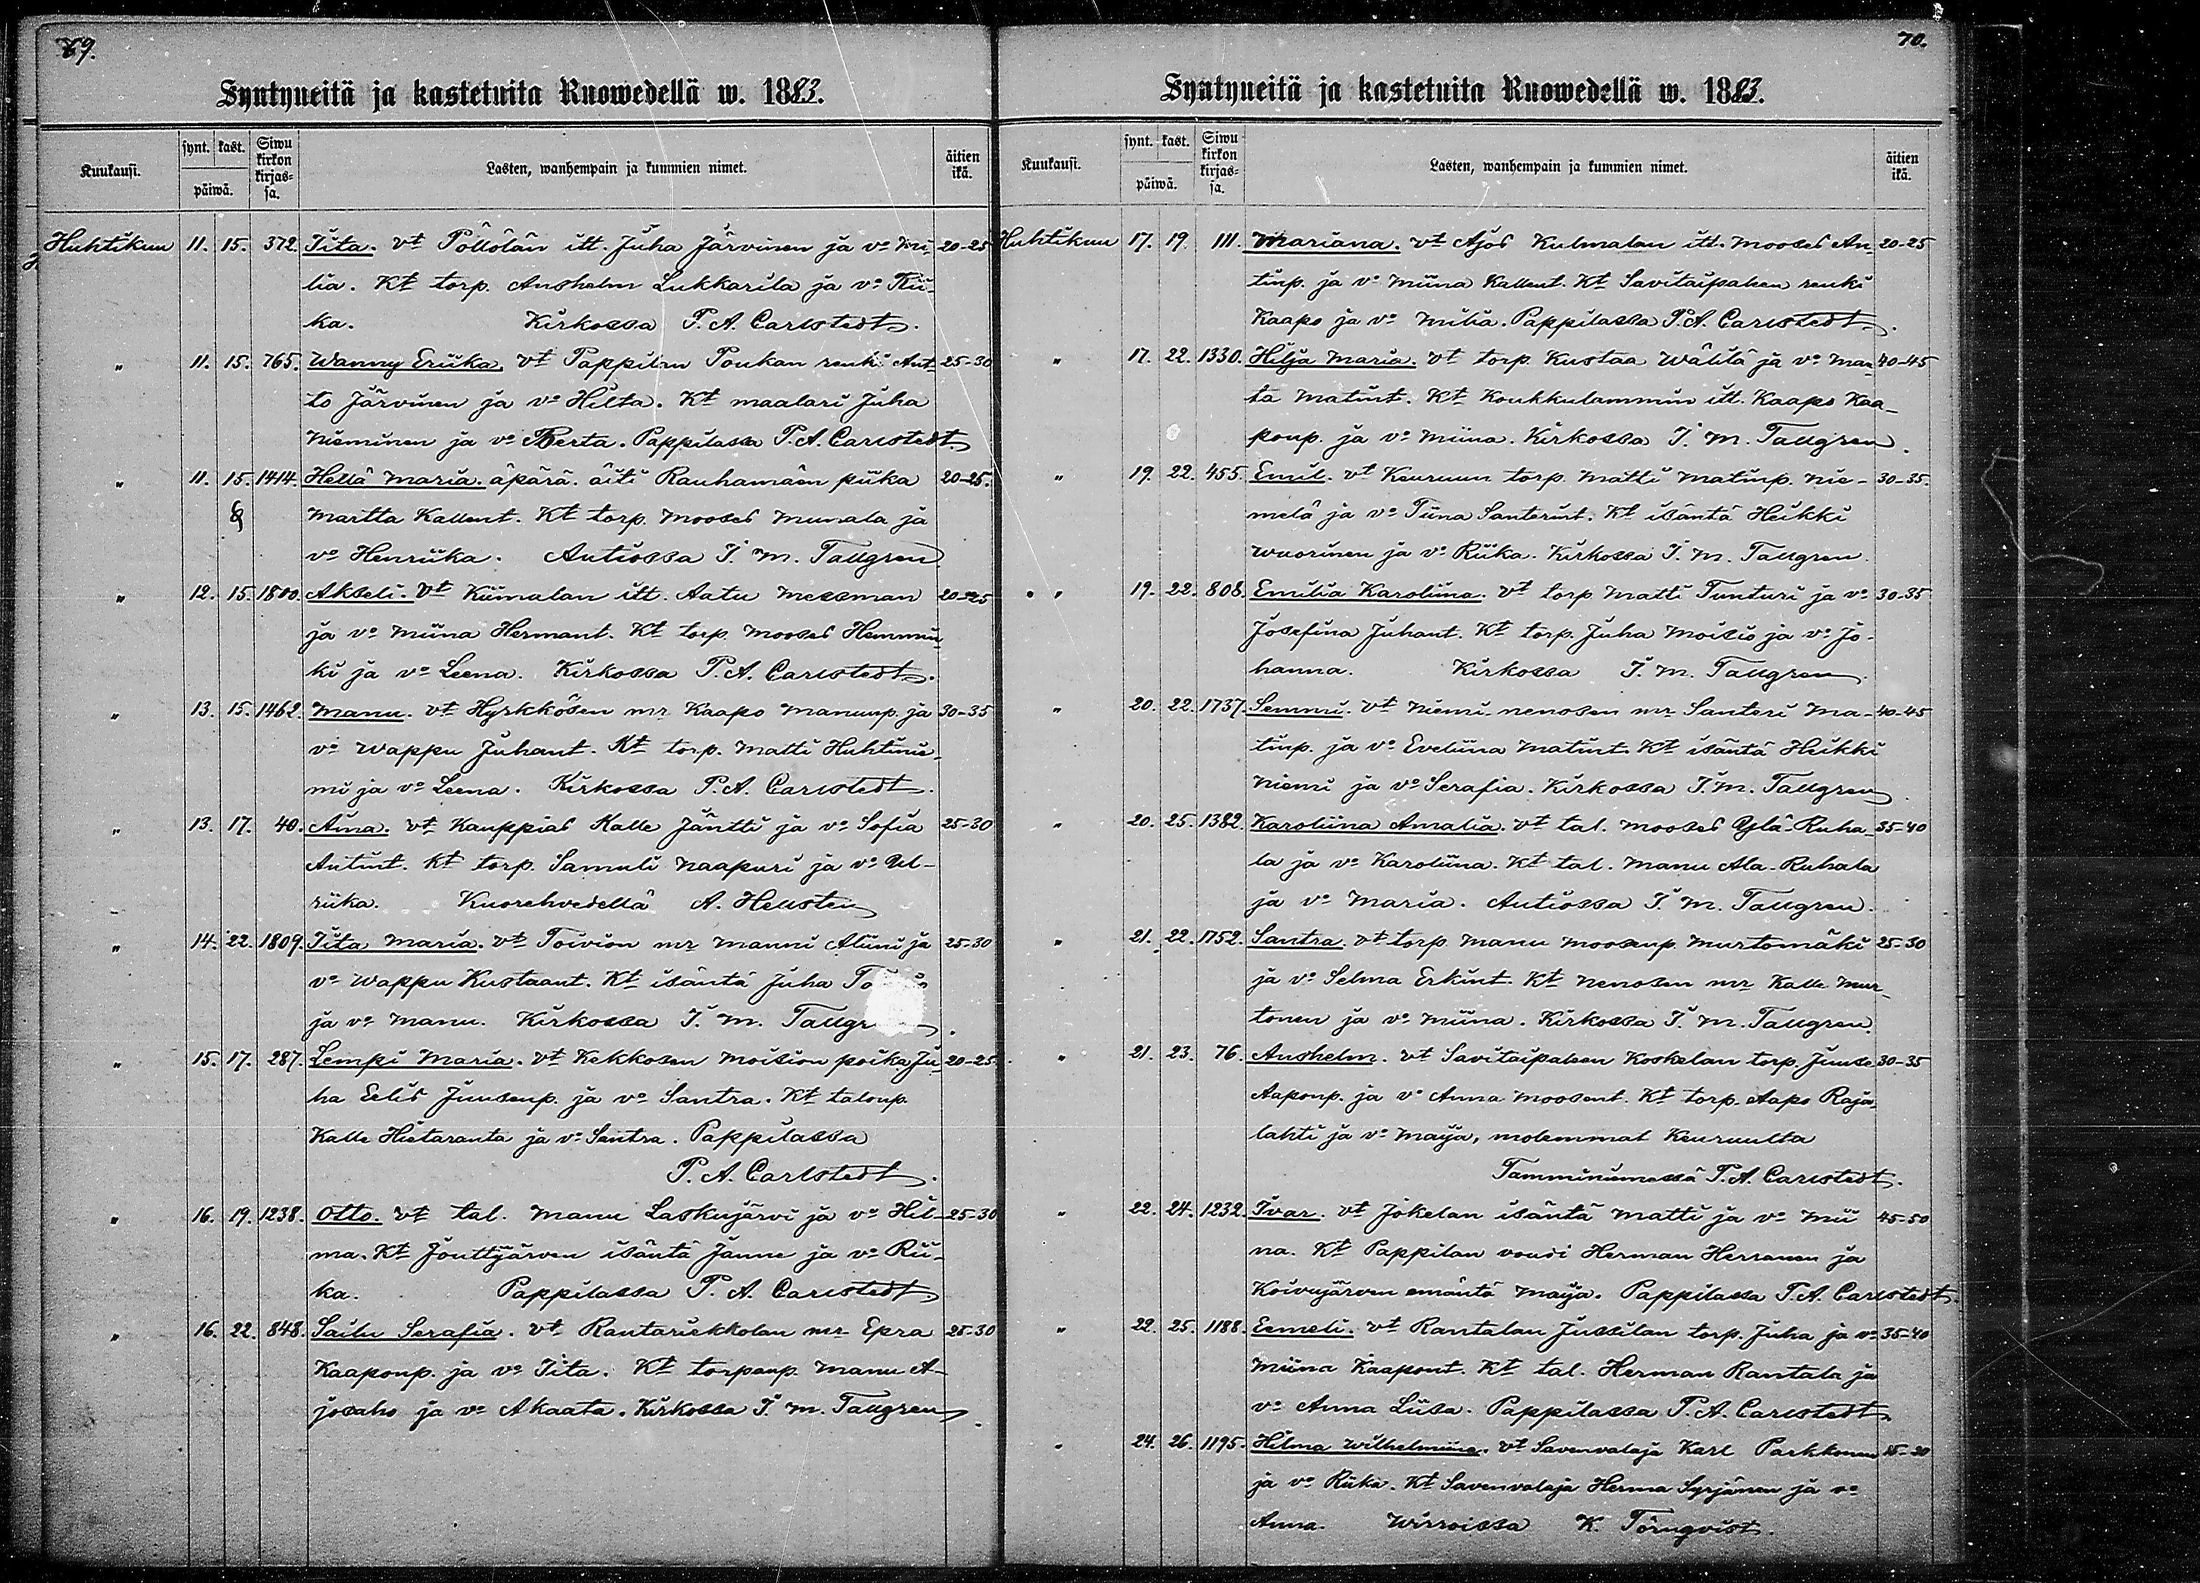 69.
Syntyneitä ja kastetuita Ruowedellä w. 1883.
Kuukausi. synt. kast. päiwä. Siwu kirkon kirjas= sa. Lasten, wanhempain ja kummien nimet. äitien ikä.
Huhtikuu 11. 15. 372. Iita. vt Pöllölän itt. Juha Järvinen ja vo Mi- 20-25
lia. Kt torp. Anshelm Lukkarila ja vo Rii-
ka. Kirkossa P. A. Carlstedt.
" 11. 15. 765. Wanny Eriika. vt Pappilan Poukan renki Ant- 25-30
to Järvinen ja vo Hilta. Kt maalari Juha
Nieminen ja vo Berta. Pappilassa P. A. Carlstedt
" 11. 15. 1414. Hellä Maria. äpärä. äiti Rauhamäen piika 20-25.
Martta Kallent. Kt torp. Mooses Munala ja
vo Henriika. Autiossa I. M. Tallgren
" 12. 15. 1800. Akseli. vt Kiimalan itt. Aatu Messman 20-25
ja vo Miina Hermant. Kt torp. Mooses Hemmin-
ki ja vo Leena. Kirkossa P. A. Carlstedt.
" 13. 15. 1462. Manu. vt Hyrkkösen mr Kaapo Manunp. ja 30-35
vo Wappu Juhant. Kt torp. Matti Huhtinie-
mi ja vo Leena. Kirkossa P. A. Carlstedt.
" 13. 17. 40. Aina. vt Kauppias Kalle Jäntti ja vo Sofia 25-30
Antint. Kt torp. Samuli Naapuri ja vo Ul-
riika. Kuorehvedellä A. Hellsten
" 14. 22. 1809. Iita Maria. vt Toivion mr Manni Aliini ja 25-30
vo Wappu Kustaant. Kt isäntä Juha
ja vo Manu. Kirkossa I. M.
" 15. 17. 287. Lempi Maria. vt Kekkosen Moision poika Ju- 20-25
ha Eelis Juusenp. ja vo Santra. Kt talonp.
Kalle Hietaranta ja vo Santra. Pappilassa
P. A. Carlstedt.
" 16. 19. 1238. Otto. vt tal. Manu Laskujärvi ja vo Hil- 25-30
ma. Kt Jouttijärven isäntä Janne ja vo Rii-
ka. Pappilassa P. A. Carlstedt
" 16. 22. 848. Sailu Serafia. vt Rantariekkolan mr Epra 25-30
Kaaponp. ja vo Iita. Kt torpanp. Manu A-
josaho ja vo Akaata. Kirkossa I. M. Tallgren
70.
Syntyneitä ja kastetuita Ruowedellä w. 1883.
Kuukausi. synt. kast. päiwä. Siwu kirkon kirjas= sa. Lasten, wanhempain ja kummien nimet. äitien ikä.
Huhtikuu 17. 19. 111. Mariana. vt Ajos Kulmalan itt. Mooses An- 20-25
tinp. ja vo Miina Kallent. Kt Savitaipaleen renki
Kaapo ja vo Milia. Pappilassa P. A. Carlstedt.
" 17. 22. 1330. Hilja Maria. vt torp. Kustaa Wälilä ja vo Man- 40-45
ta Matint. Kt Koukkulammin itt. Kaapo Kaa-
ponp. ja vo Miina. Kirkossa I. M. Tallgren.
" 19. 22. 455. Emil. vt Keuruun torp. Matti Matinp. Nie- 30-35.
melä ja vo Tiina Santerint. Kt isäntä Heikki
Wuorinen ja vo Riika. Kirkossa I. M. Tallgren.
" 19. 22. 808. Emilia Karoliina. vt torp Matti Tunturi ja vo 30-35
Josefina Juhant. Kt torp. Juha Moisio ja vo Jo-
hanna. Kirkossa I. M. Tallgren.
" 20. 22. 1737. Semmi. vt Niemi-nenosen mr Santeri Ma- 40-45
tinp. ja vo Eveliina Matint. Kt isäntä Heikki
Niemi ja vo Serafia. Kirkossa I. M. Tallgren
" 20. 25. 1382. Karoliina Amalia. vt tal. Mooses Ylä-Ruha- 35-40
la ja vo Karoliina. Kt tal. Manu Ala-Ruhala
ja vo Maria. Autiossa I. M. Tallgren.
" 21. 22. 1752. Santra. vt torp. Manu Moosenp. Murtomäki 25-30
ja vo Selma Erkint. Kt Nenosen mr Kalle Mur-
tonen ja vo Miina. Kirkossa I. M. Tallgren.
" 21. 23. 76. Anshelm. vt Savitaipaleen Koskelan torp. Juuse 30-35
Aaponp. ja vo Anna Moosent. Kt torp. Aapo Raja-
lahti ja vo Maija, molemmat Keuruulta
Tamminiemessä P. A. Carlstedt.
" 22. 24. 1232. Ivar. vt Jokelan isäntä Matti ja vo Mii 45-50
na. Kt Pappilan voudi Herman Herranen ja
Koivujärven emäntä Maija. Pappilassa P. A. Carlstedt.
" 22. 25. 1188. Eemeli. vt Rantalan Jussilan torp. Juha ja vo 35-40
Miina Kaapont. Kt tal. Herman Rantala ja
vo Anna Liisa. Pappilassa P. A. Carlstedt.
" 24. 26. 1195. Hilma Wilhelmiina. vt Savenvalaja Karl Parkkonen
ja vo Riika. Kt Savenvalaja Herma Syrjänen ja vo
Anna. Wirroissa K. Törnqvist.